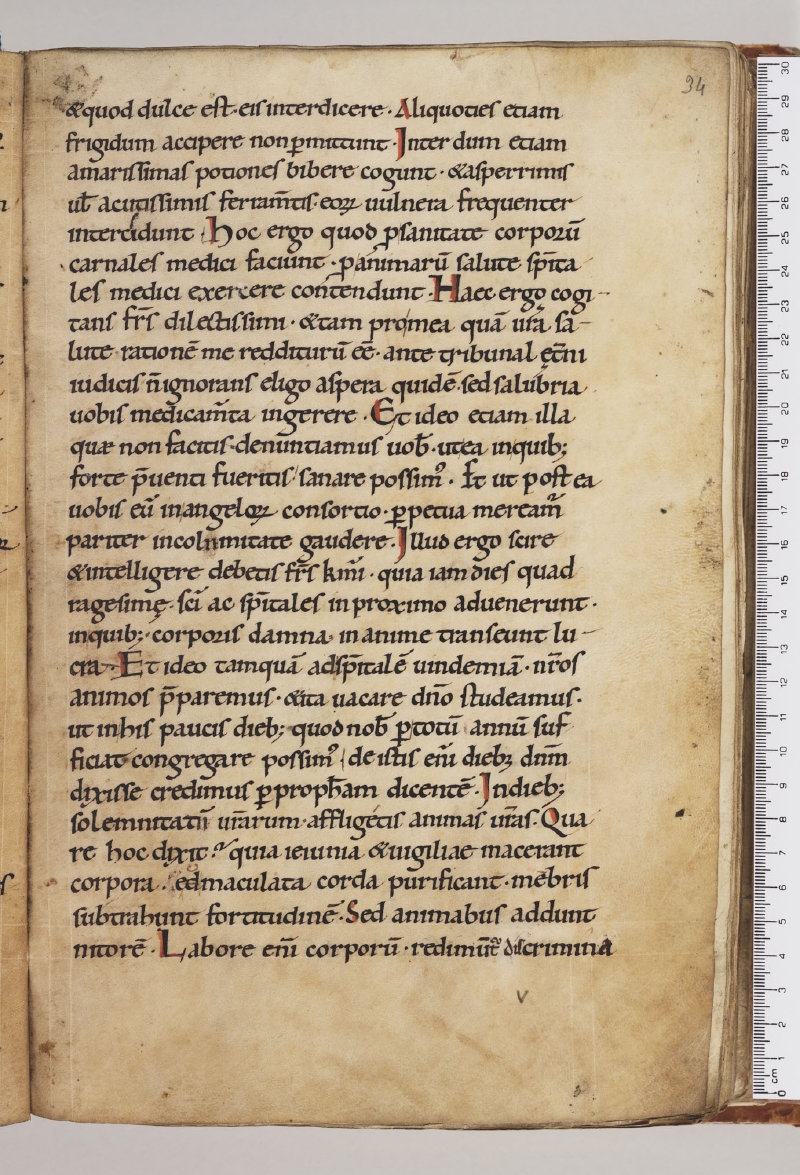 34
&quod dulce est· eis interdicere· Aliquoties etiam
frigidum accipere non p̄mittunt· Inter dum etiam
amarissimas potiones bibere cogunt· &asperrimis
ul̄ acutissimis feriam̄tis· eoꝝ uulnera frequenter
intercidunt· Hoc ergo quod ꝓsanitate corporū
carnales medici faciunt· ꝓanimarū salute sp̄ita
les medici exercere contendunt· Haec ergo cogi-
tans fr̄s dilectissimi· &tam pro mea quā ur̄a sa-
lute rationē me redditurū eē· ante tribunal ęt̄ni
iudicis n̄ ignorans eligo aspera quidē· sed salubria
uobis medicam̄ta ingerere· Et ideo etiam illa
quae non facitis· denuntiamus uob̄· ut ea in quib;
forte p̄uenti fueritis· sanare possimꝰ· Et ut postea
uobis cū in angeloꝝ consortio· ꝑpetua meream̄
pariter incolumitate gaudere· Illud ergo scire
&intelligere debetis fr̄s km̄i· quia iam dies quad
ragesimę· sc̄i ac sp̄itales in proximo aduenerunt·
in quib;· corporis damna· in anime transeunt lu-
cra· Et ideo tamquā ad sp̄italē uindemiā· nr̄os
animos p̄paremus· &ita uacare dn̄o studeamus·
ut in his paucis dieb; quod nob̄ ꝑ totū annū suf
ficiat congregare possimꝰ· de istis eni̅ dieb; dn̄m
dixisse credimus ꝑ proph̄am dicentē· In dieb;
solemnitatū ur̄arum· affligetis animas ur̄as· Qua
re hoc dixit? quia ieiunia &uigiliae macerant
corpora· sed maculata corda purificant· mēbris
subtrahunt fortitudinē· Sed animabus addunt
nitorē· Labore eni̅ corporū· redimunt᷑ discrimina
V